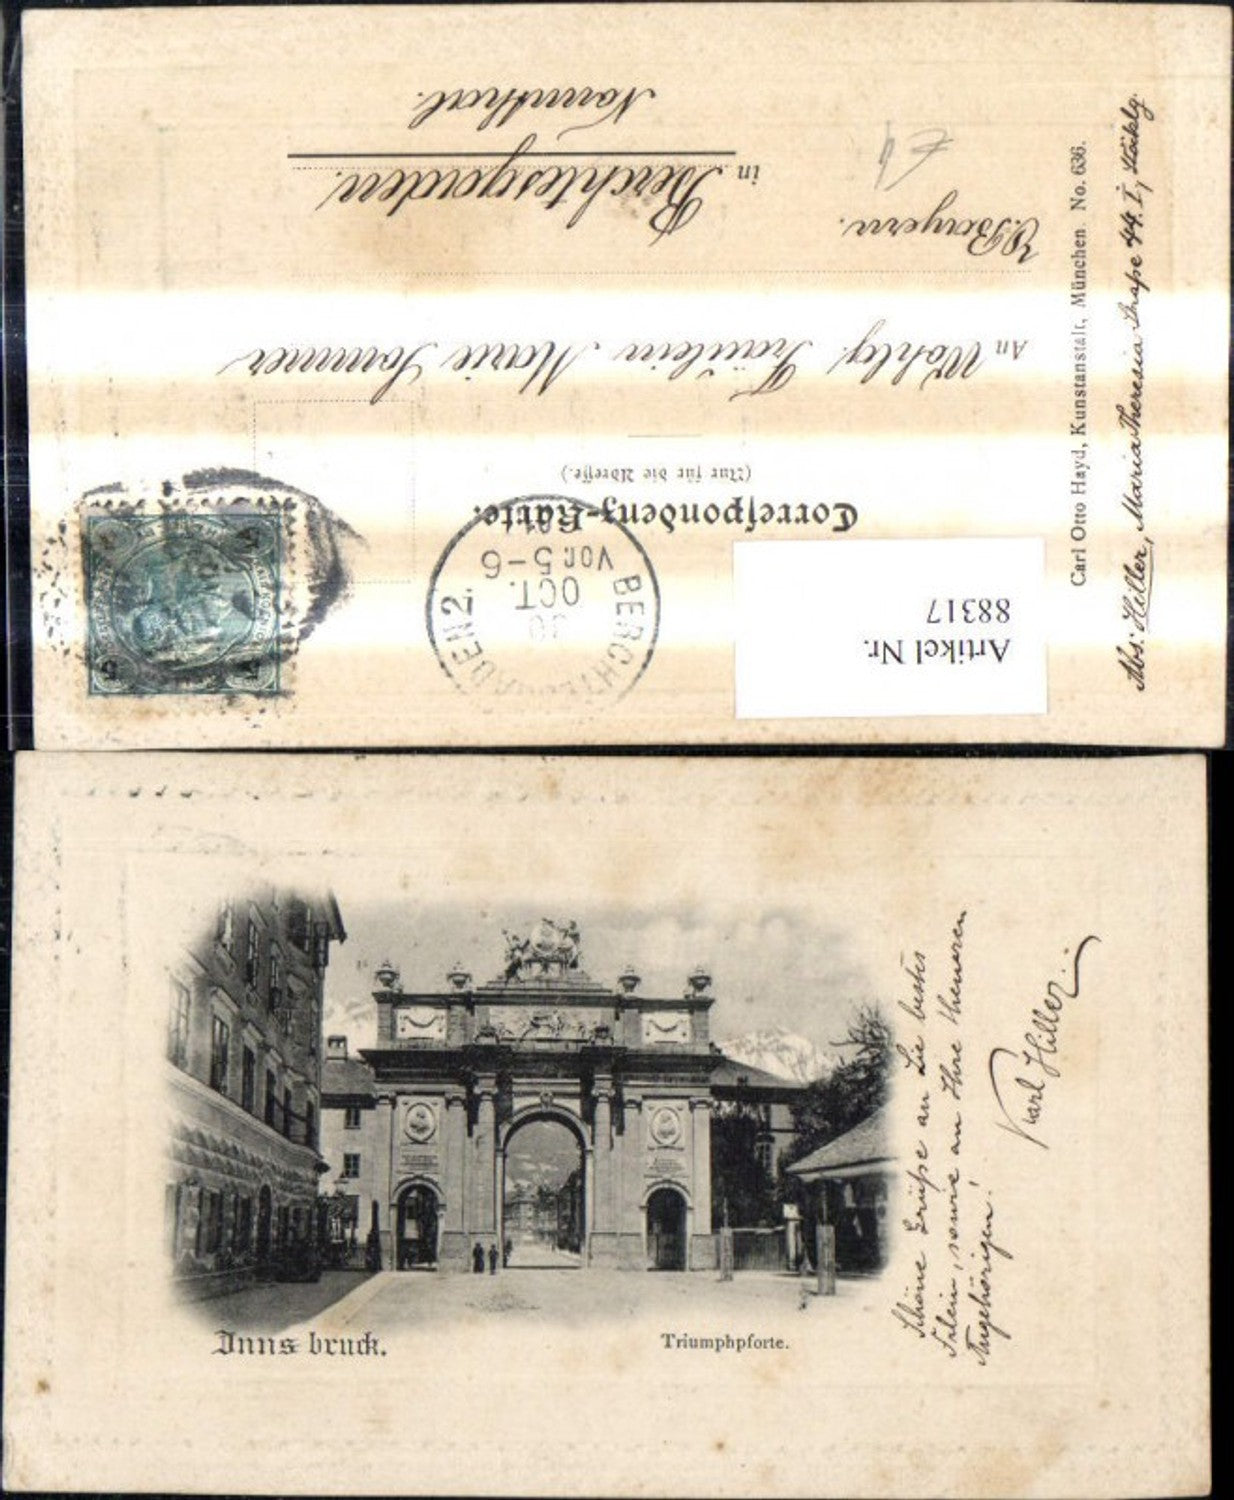 Correspondenz-Karte.
(Nur für die Adresse.)
An Wohlg. Fräulein Marie Sommer
O. Bayern.
in Berchtesgaden.
Nonnthal.
BERCHTESGADEN 2.
OCT.
VOR. 5-6
5
Artikel Nr.
88317
Carl Otto Hayd, Kunstanstalt, München. No. 636.
Abs: Hiller, Maria Theresia Straße 44. I, Stöcklg.
Innsbruck.
Triumphpforte.
Schöne Grüße an Sie bestes
Frlein, sowie an Ihre theueren
Angehörigen!
Karl Hiller.